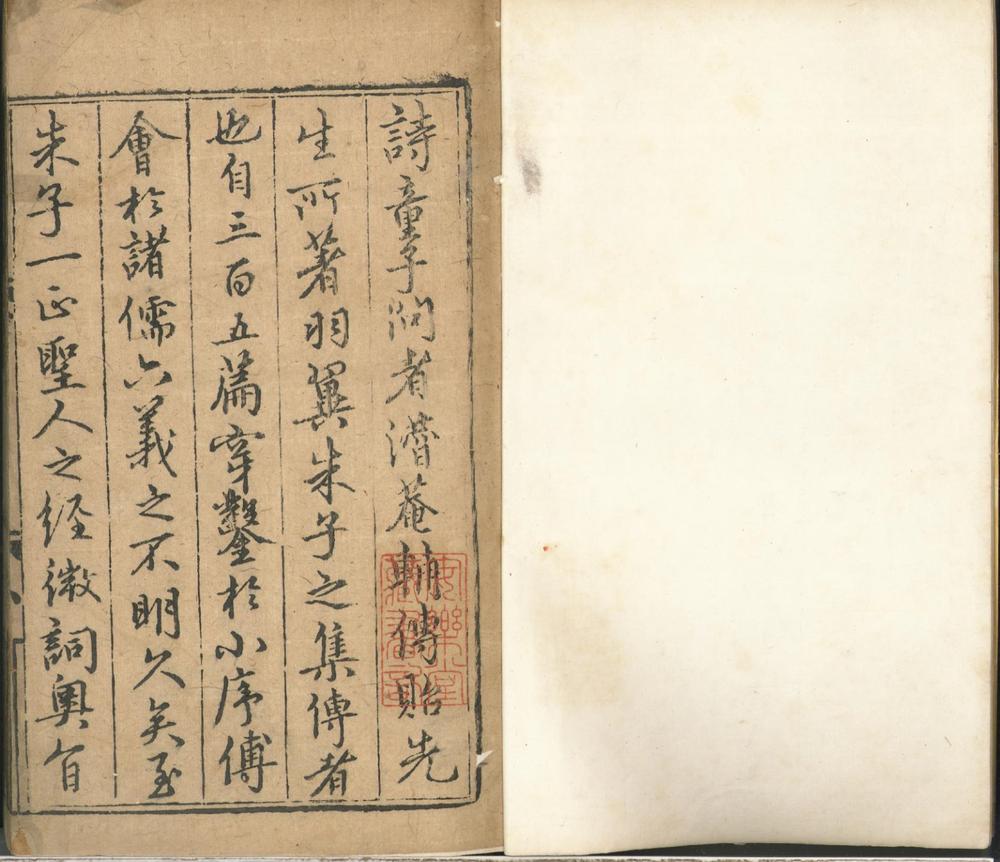 詩童子問者潛菴輔傳貽先
生所著羽翼朱子之集傳者
也自三百五篇穿鑿於小序傅
會於諸儒六義之不明久矣至
朱子一正聖人之經微詞奧旨
安樂堂
藏書記